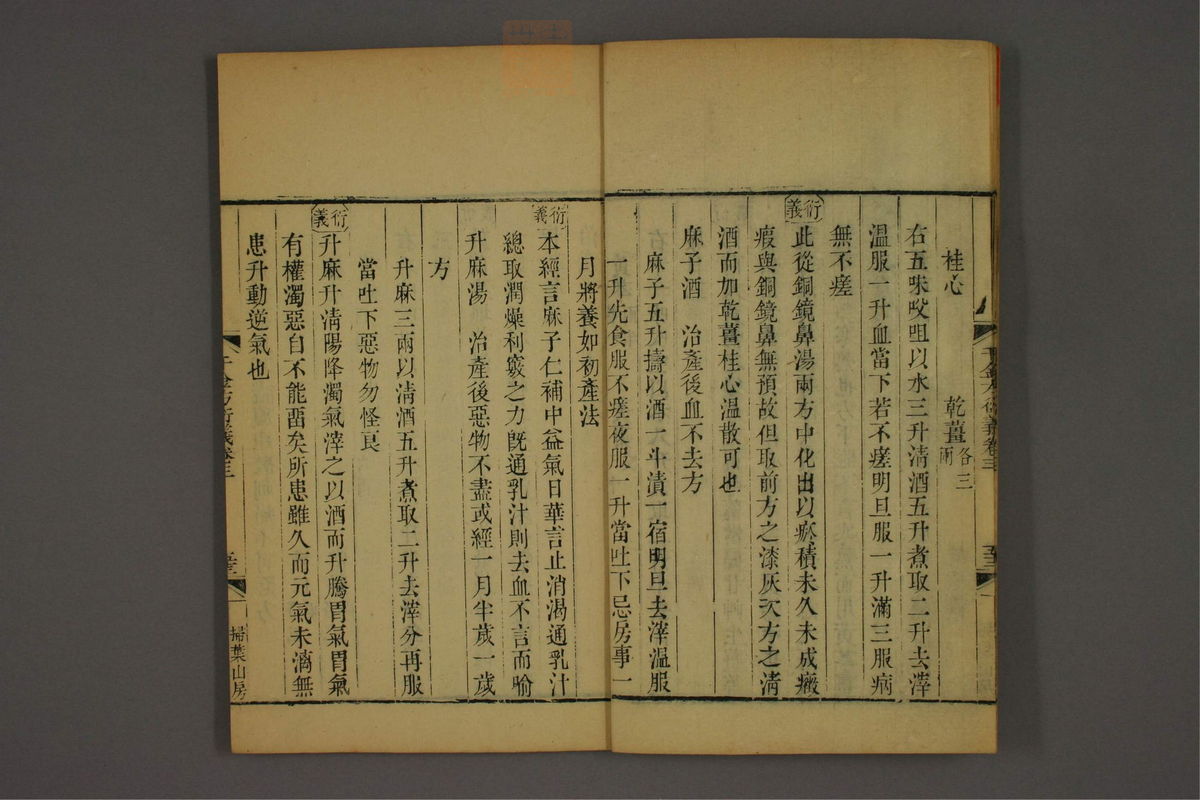 桂心　乾薑各三兩
右五味㕮咀以水三升清酒五升煮取二升去滓
溫服一升血當下若不瘥明旦服一升滿三服病
無不瘥
衍義
此從銅鏡鼻湯兩方中化出以瘀積未久未成癥
瘕與銅鏡鼻無預故但取前方之漆灰次方之清
酒而加乾薑桂心溫散可也
麻子酒　治產後血不去方
麻子五升擣以酒一斗漬一宿明旦去滓溫服
一升先食服不瘥夜服一升當吐下忌房事一
月將養如初產法
衍義
本經言麻子仁補中益氣日華言止消渴通乳汁
總取潤燥利竅之力既通乳汁則去血不言而喻
升麻湯　治產後惡物不盡或經一月半歲一歲
方
升麻三兩以清酒五升煮取二升去滓分再服
當吐下惡物勿怪良
衍義
升麻升清陽降濁氣滓之以酒而升騰胃氣胃氣
有權濁惡自不能畱矣所患雖久而元氣未漓無
患升動逆氣也
千金方衍義卷三
掃葉山房